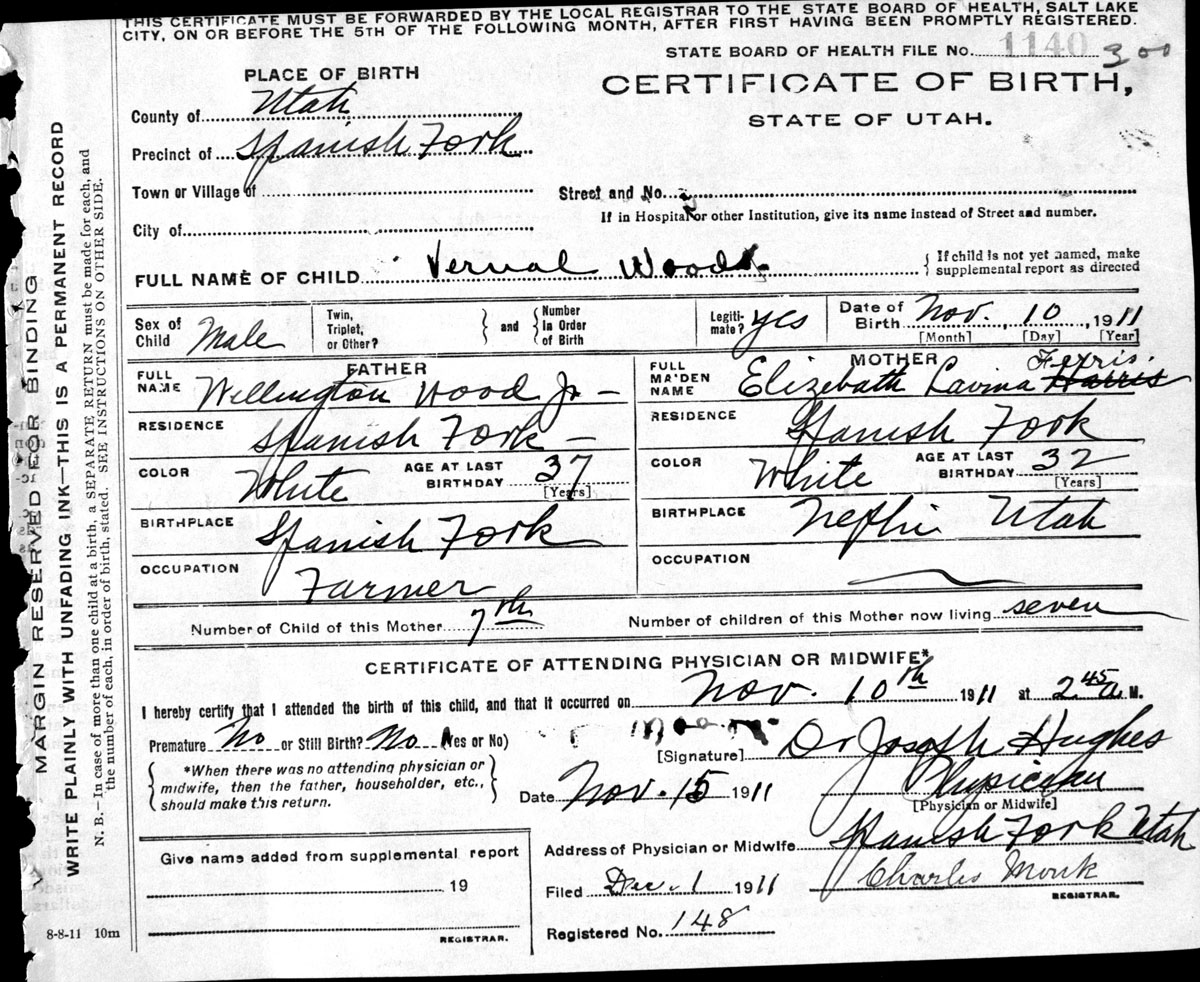 THIS CERTIFICATE MUST BE FORWARDED BY THE LOCAL REGISTRAR TO THE STATE BOARD OF HEALTH, SALT LAKE
CITY, ON OR BEFORE THE 5TH OF THE FOLLOWING MONTH, AFTER FIRST HAVING BEEN PROMPTLY REGISTERED.
STATE BOARD OF HEALTH FILE No. 1140 300
PLACE OF BIRTH
CERTIFICATE OF BIRTH,
STATE OF UTAH.
County of Utah
Precinct of Spanish Fork
Town or Village of
Street and No.
If in Hospital or other Institution, give its name instead of Street and number.
City of
FULL NAME OF CHILD Vernal Wood
If child is not yet named, make
supplemental report as directed
Sex of Child Male
Twin, Triplet, or Other? and Number In Order of Birth
Legiti-mate? yes
Date of Birth Nov. 10, 1911
[Month] [Day] [Year]
FATHER
FULL NAME Wellington Wood Jr –
RESIDENCE Spanish Fork –
COLOR White AGE AT LAST BIRTHDAY 37
[Years]
BIRTHPLACE Spanish Fork
OCCUPATION Farmer
MOTHER
FULL MAIDEN NAME Elizebath Lavina Harris Ferris.
RESIDENCE Spanish Fork
COLOR White AGE AT LAST BIRTHDAY 32
[Years]
BIRTHPLACE Nephi Utah
OCCUPATION
Number of Child of this Mother 7th
Number of children of this Mother now living seven
CERTIFICATE OF ATTENDING PHYSICIAN OR MIDWIFE*
I hereby certify that I attended the birth of this child, and that it occurred on Nov. 10th 1911 at 2 45 a M.
Premature No or Still Birth? No (Yes or No)
*When there was no attending physician or
midwife, then the father, householder, etc.,
should make this return.
[Signature] Dr Joseph Hughes
Physician
[Physician or Midwife]
Date Nov. 15 1911
Address of Physician or Midwife Spanish Fork Utah
Filed Dec. 1 1911 Charles Monk
REGISTRAR.
Registered No. 148
Give name added from supplemental report
19
REGISTRAR.
8-8-11 10m
MARGIN RESERVED FOR BINDING
WRITE PLAINLY WITH UNFADING INK—THIS IS A PERMANENT RECORD
N. B.—In case of more than one child at a birth, a SEPARATE RETURN must be made for each, and
the number of each, in order of birth, stated. SEE INSTRUCTIONS ON OTHER SIDE.